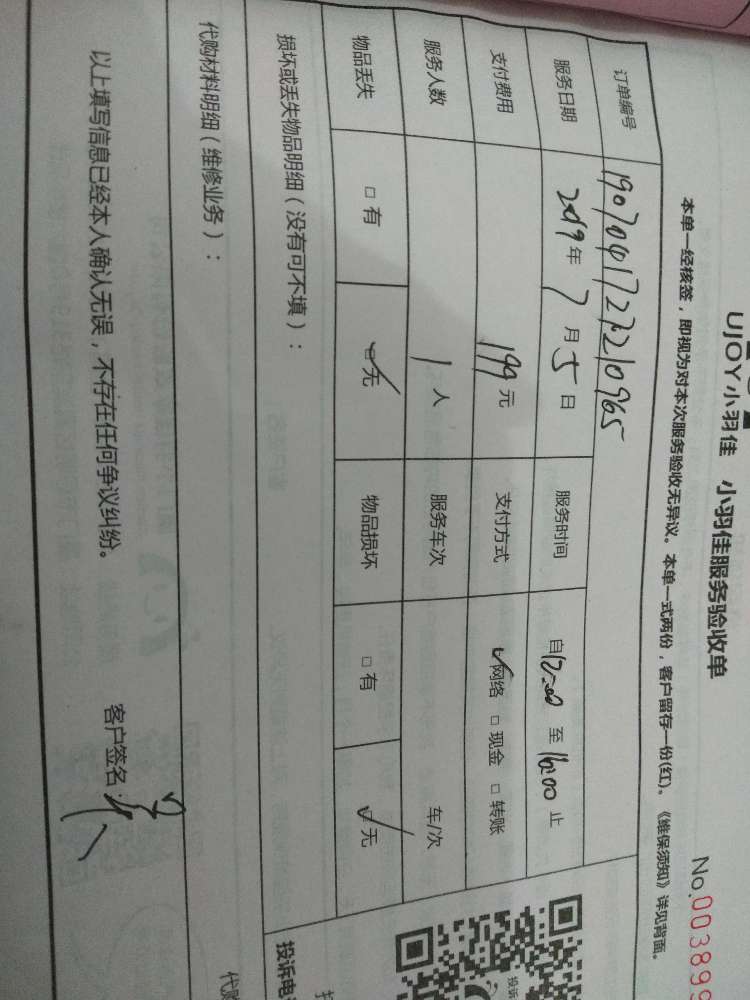 UJOY小羽佳 小羽佳服务验收单
No.003899
本单一经核签，即视为对本次服务验收无异议。本单一式两份，客户留存一份(红)。《维保须知》详见背面。
订单编号 1907041727210965
服务日期 2019年7月5日 服务时间 自12:00至16:00止
支付费用 199元 支付方式 ☑网络 □现金 □转账
服务人数 1人 服务车次 车/次
物品丢失 □有 ☑无 物品损坏 □有 ☑无
损坏或丢失物品明细（没有可不填）：
投诉
投诉电
代购材料明细（维修业务）：
代购
以上填写信息已经本人确认无误，不存在任何争议纠纷。 客户签名：